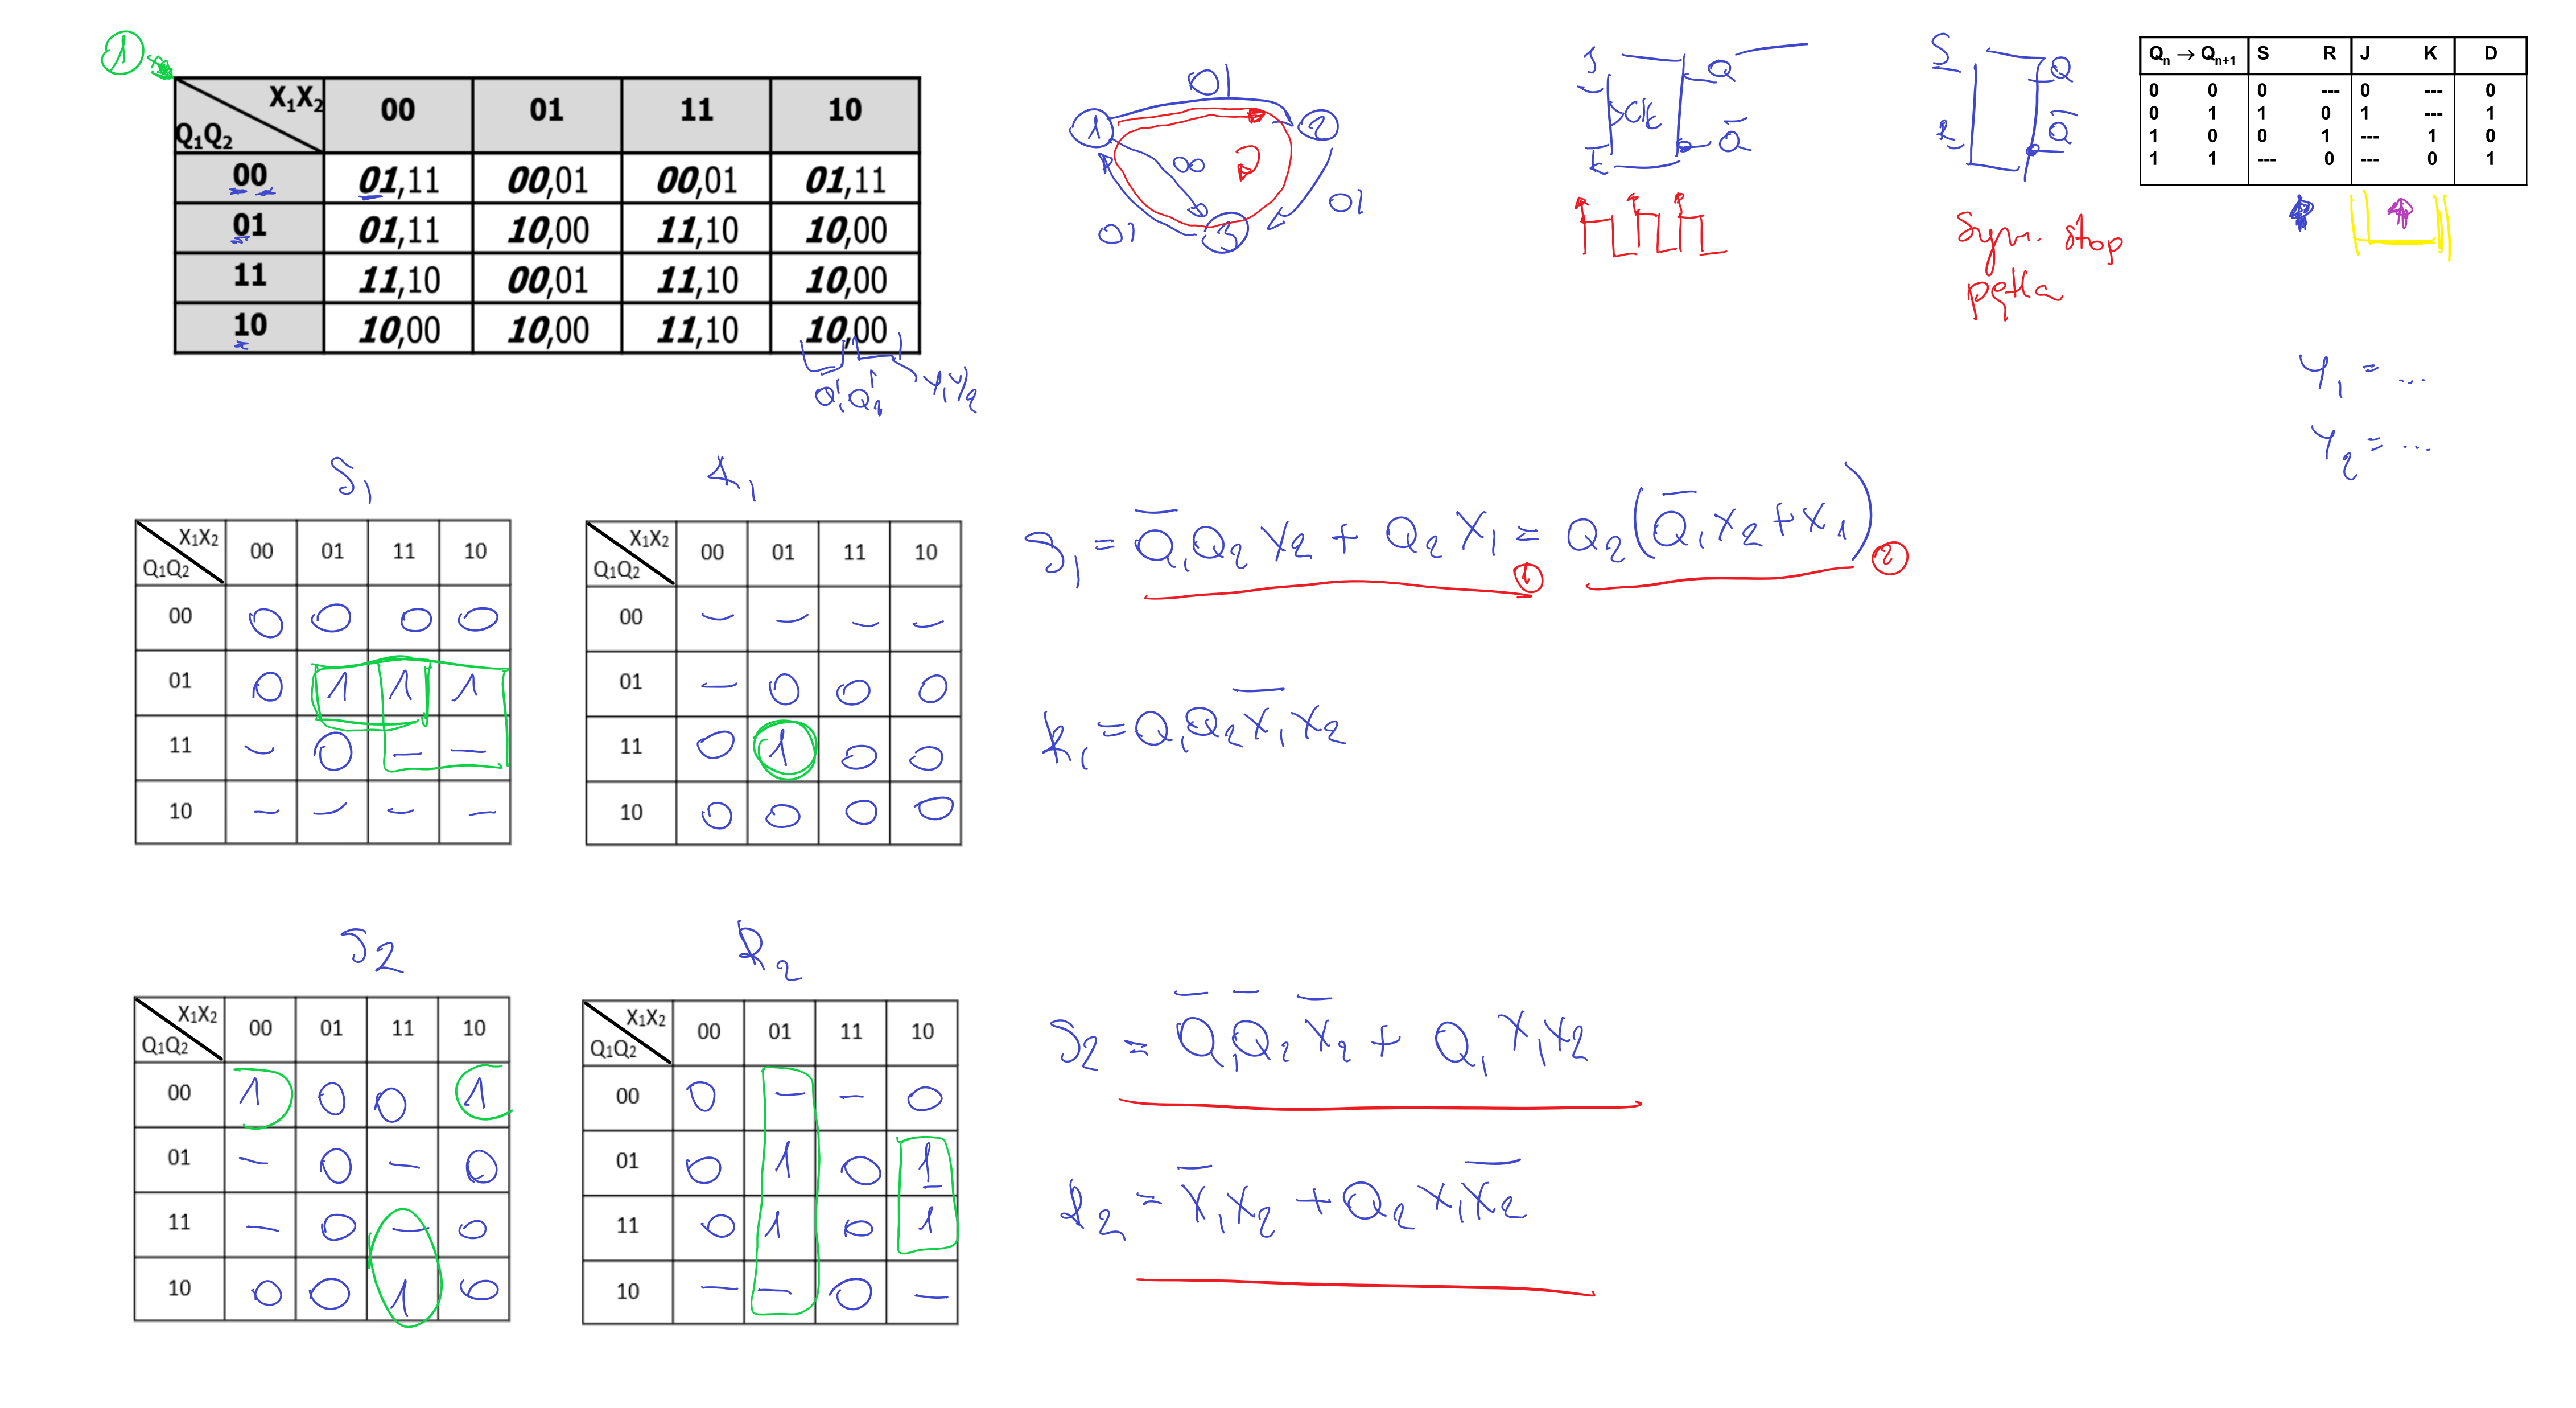 1
X₁X₂ 00 01 11 10
Q₁Q₂
00 01,11 00,01 00,01 01,11
01 01,11 10,00 11,10 10,00
11 11,10 00,01 11,10 10,00
10 10,00 10,00 11,10 10,00
Q₁'Q₂' Y₁Y₂
01
1 2
00
01 01
3
J Q
Clk
K Q̅
S Q
R Q̅
Sym. stop
pętla
Qₙ → Qₙ₊₁ S R J K D
0 0 0 --- 0 --- 0
0 1 1 0 1 --- 1
1 0 0 1 --- 1 0
1 1 --- 0 --- 0 1
Y₁ = ...
Y₂ = ...
S₁
X₁X₂ 00 01 11 10
Q₁Q₂
00 0 0 0 0
01 0 1 1 1
11 – 0 – –
10 – – – –
R₁
X₁X₂ 00 01 11 10
Q₁Q₂
00 – – – –
01 – 0 0 0
11 0 1 0 0
10 0 0 0 0
S₁ = Q̅₁Q₂X₂ + Q₂X₁ = Q₂(Q̅₁X₂+X₁)
1 2
R₁ = Q₁Q₂X̅₁X₂
S₂
X₁X₂ 00 01 11 10
Q₁Q₂
00 1 0 0 1
01 – 0 – 0
11 – 0 – 0
10 0 0 1 0
R₂
X₁X₂ 00 01 11 10
Q₁Q₂
00 0 – – 0
01 0 1 0 1
11 0 1 0 1
10 – – 0 –
S₂ = Q̅₁Q̅₂X̅₂ + Q₁X₁X₂
R₂ = X̅₁X₂ + Q₂X₁X̅₂